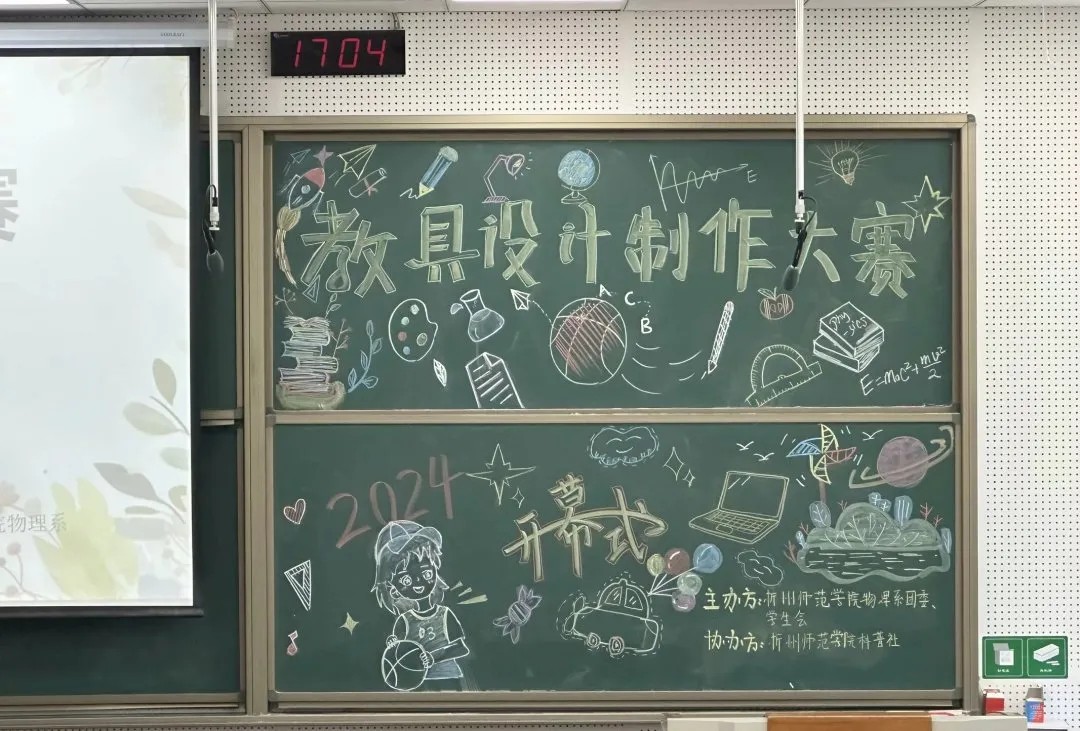 1704
赛
教具设计制作大赛
E
A C
B
phy
-sics
E=m₀c²+mv²/2
院物理系
2024
开幕式
03
主办方:忻州师范学院物理系团委、
学生会
协办方:忻州师范学院科普社